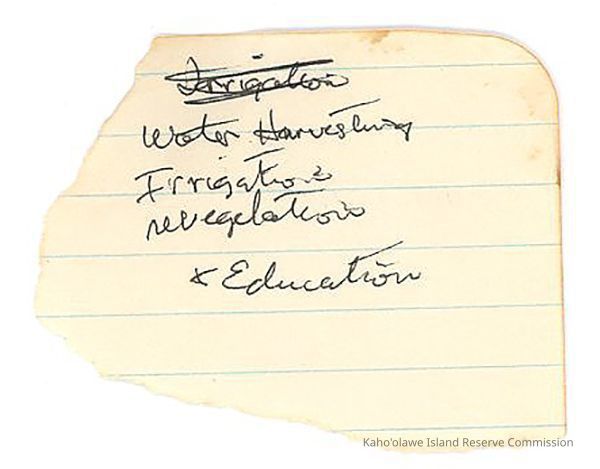 Irrigation
Water Harvesting
Irrigation
revegetation
& Education
Kaho'olawe Island Reserve Commission